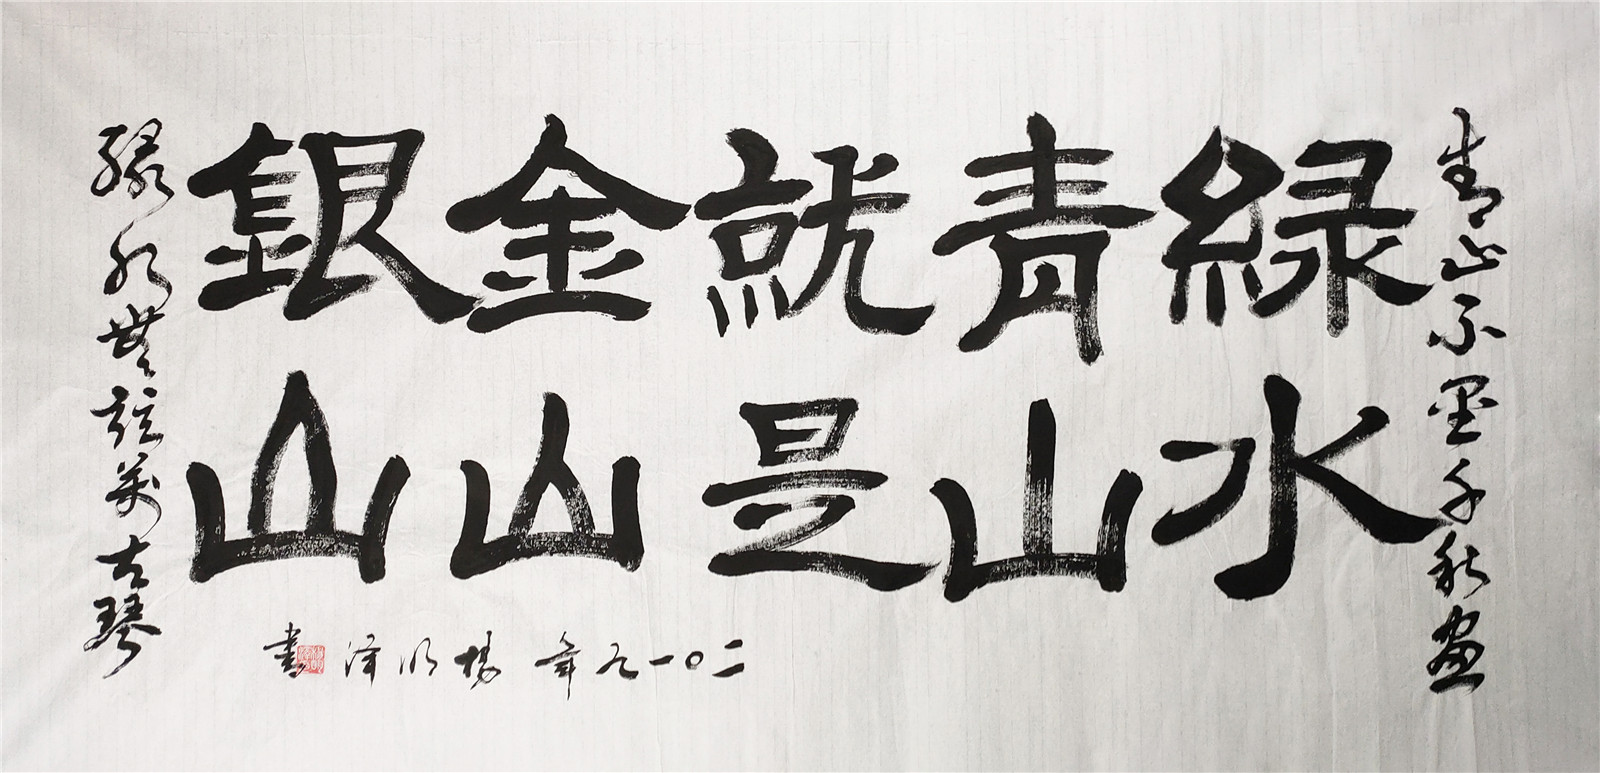 青山不墨千秋畫
緑水
青山
就是
金山
銀山
緑水無弦萬古琴
二〇一九年 楊明泽書